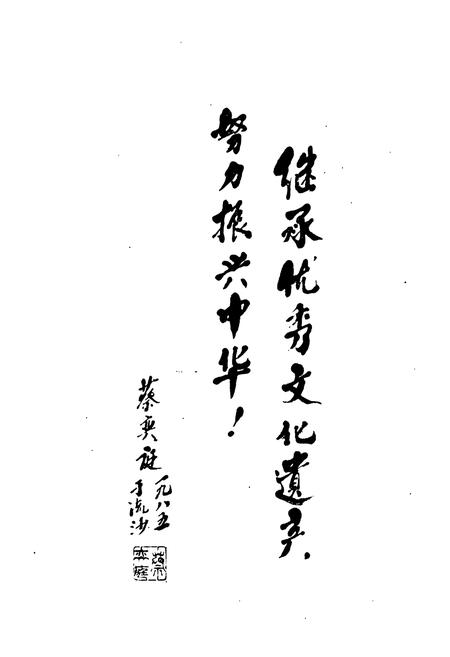 继承优秀文化遺产，
努力振兴中华！
蔡奕
一九八五
于流沙